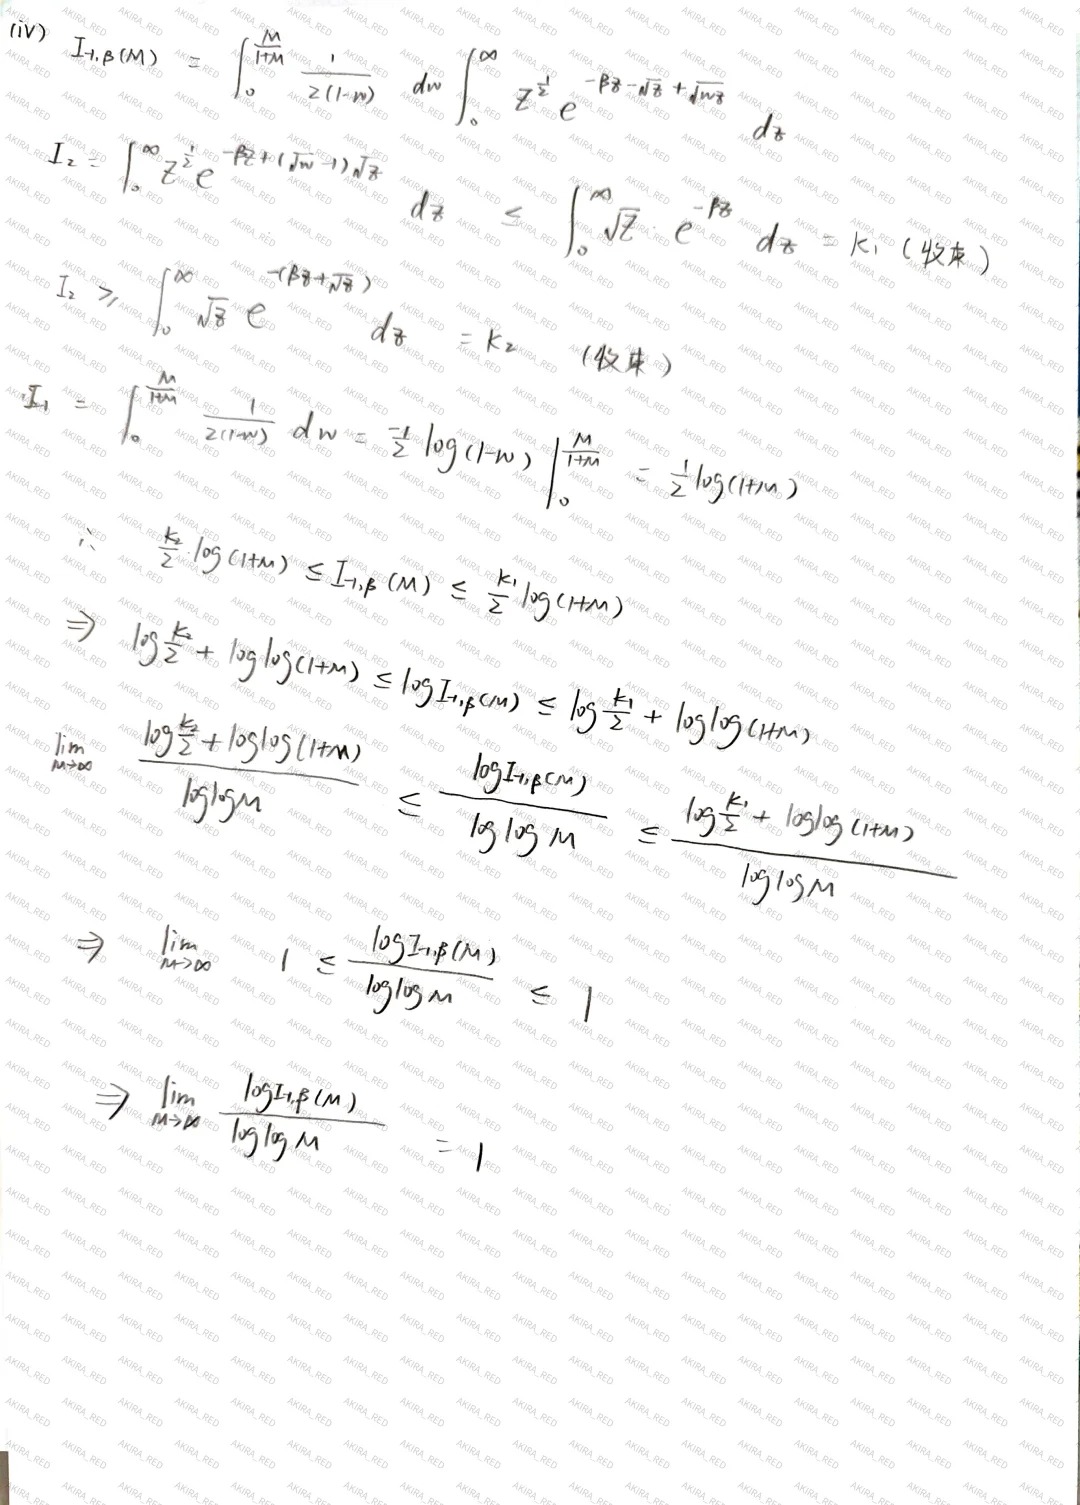 (iv) I_{-1,β}(M) = ∫_0^{M/(1+M)} 1/(2(1-w)) dw ∫_0^∞ z^{1/2} e^{-βz-√z+√(wz)} dz
I_2 = ∫_0^∞ z^{1/2} e^{-βz+(√w-1)√z} dz ≤ ∫_0^∞ √z · e^{-βz} dz = K_1 (收束)
I_2 ≥ ∫_0^∞ √z e^{-(βz+√z)} dz = K_2 (收束)
I_1 = ∫_0^{M/(1+M)} 1/(2(1-w)) dw = -1/2 log(1-w) |_0^{M/(1+M)} = 1/2 log(1+M)
∴ K_2/2 · log(1+M) ≤ I_{-1,β}(M) ≤ K_1/2 log(1+M)
⇒ log K_2/2 + log log(1+M) ≤ log I_{-1,β}(M) ≤ log K_1/2 + log log(1+M)
lim_{M→∞} (log K_2/2 + log log(1+M))/(log log M) ≤ (log I_{-1,β}(M))/(log log M) ≤ (log K_1/2 + log log(1+M))/(log log M)
⇒ lim_{M→∞} 1 ≤ (log I_{-1,β}(M))/(log log M) ≤ 1
⇒ lim_{M→∞} (log I_{-1,β}(M))/(log log M) = 1
AKIRA_RED